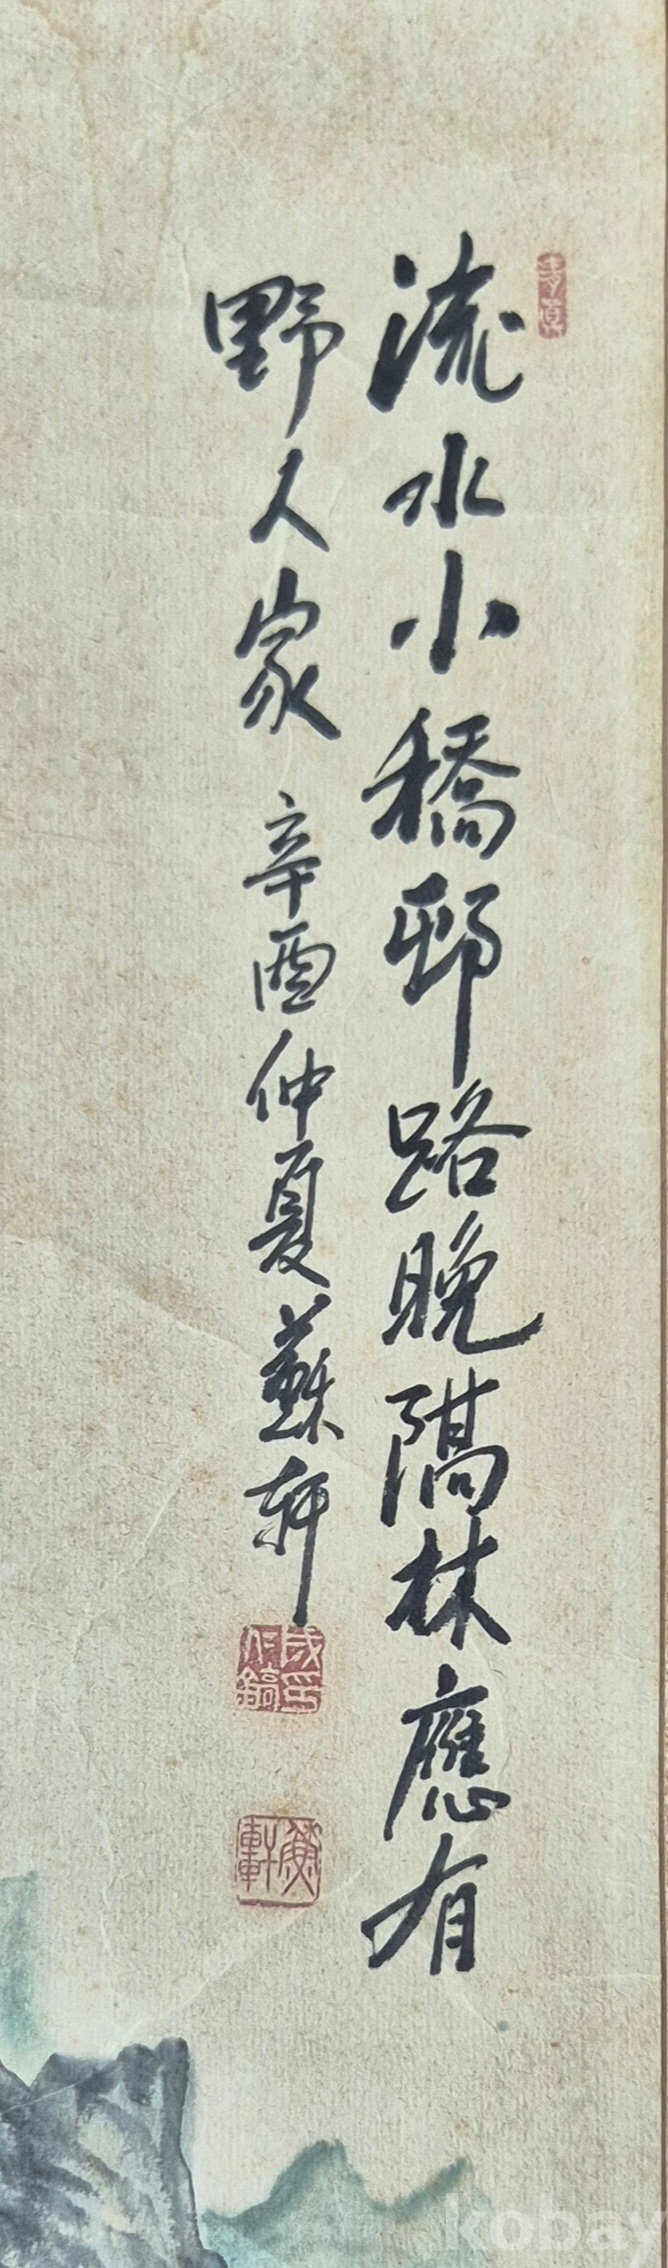 流水小橋邨路晚隔林應有
野人家 辛酉仲夏 蘇軒
kobay